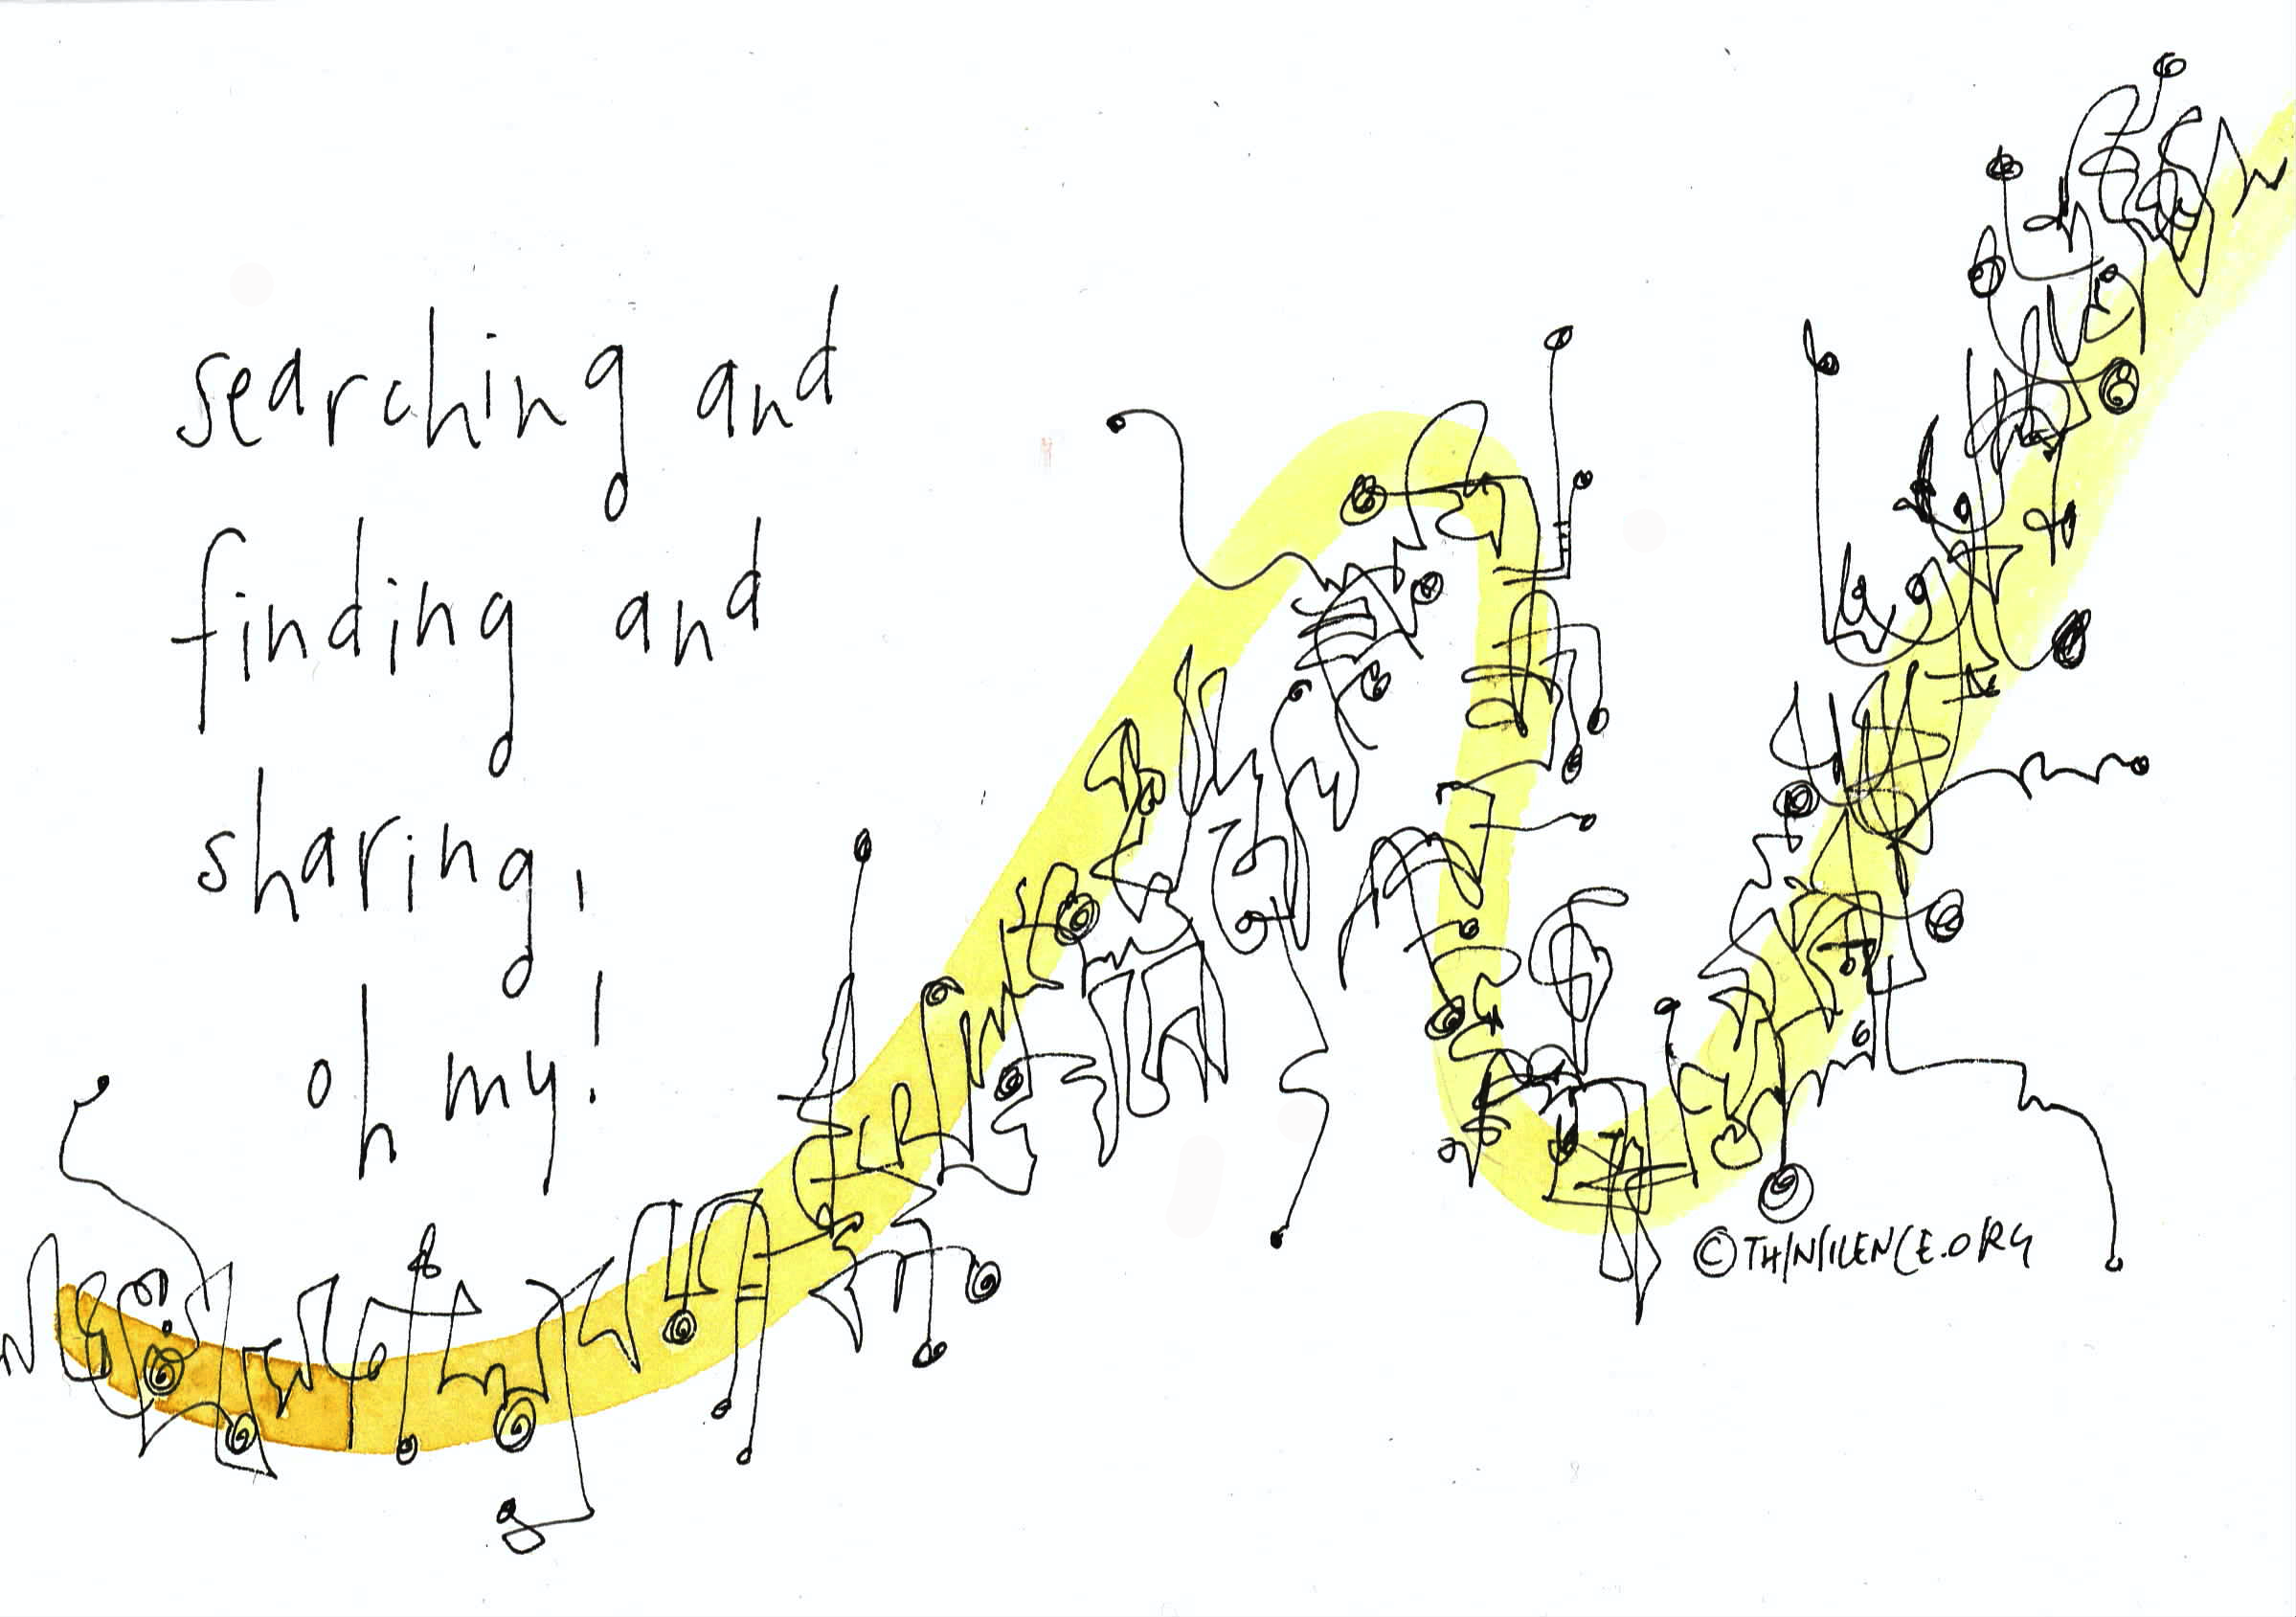 searching and
finding and
sharing,
oh my!
©THINSILENCE.ORG